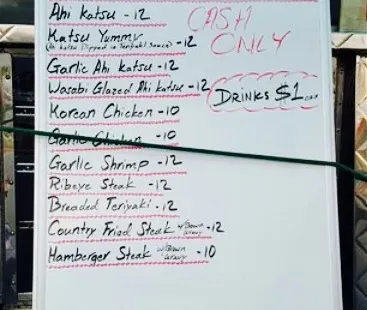 Ahi Katsu - 12
CASH ONLY
Katsu Yummy - 12
(Ahi katsu Dipped in Teriyaki Sauce)
Garlic Ahi katsu - 12
Wasabi Glazed Ahi katsu - 12
DRINKS $1
Korean Chicken - 10
Garlic Chicken - 10
Garlic Shrimp - 12
Ribeye Steak - 12
Breaded Teriyaki - 12
Country Fried Steak w/Brown Gravy - 12
Hamberger Steak w/Brown Gravy - 10